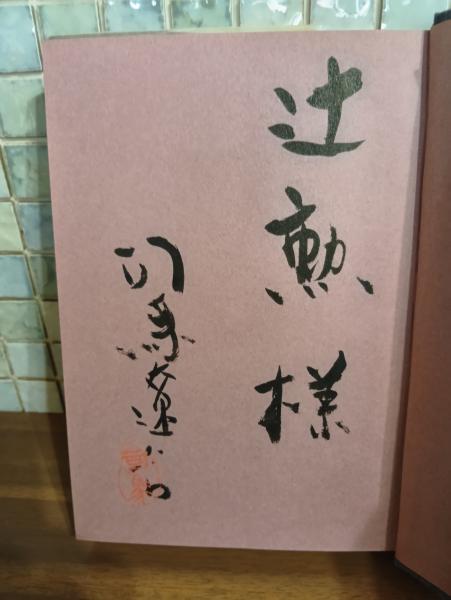 辻勲様
司馬遼太郎